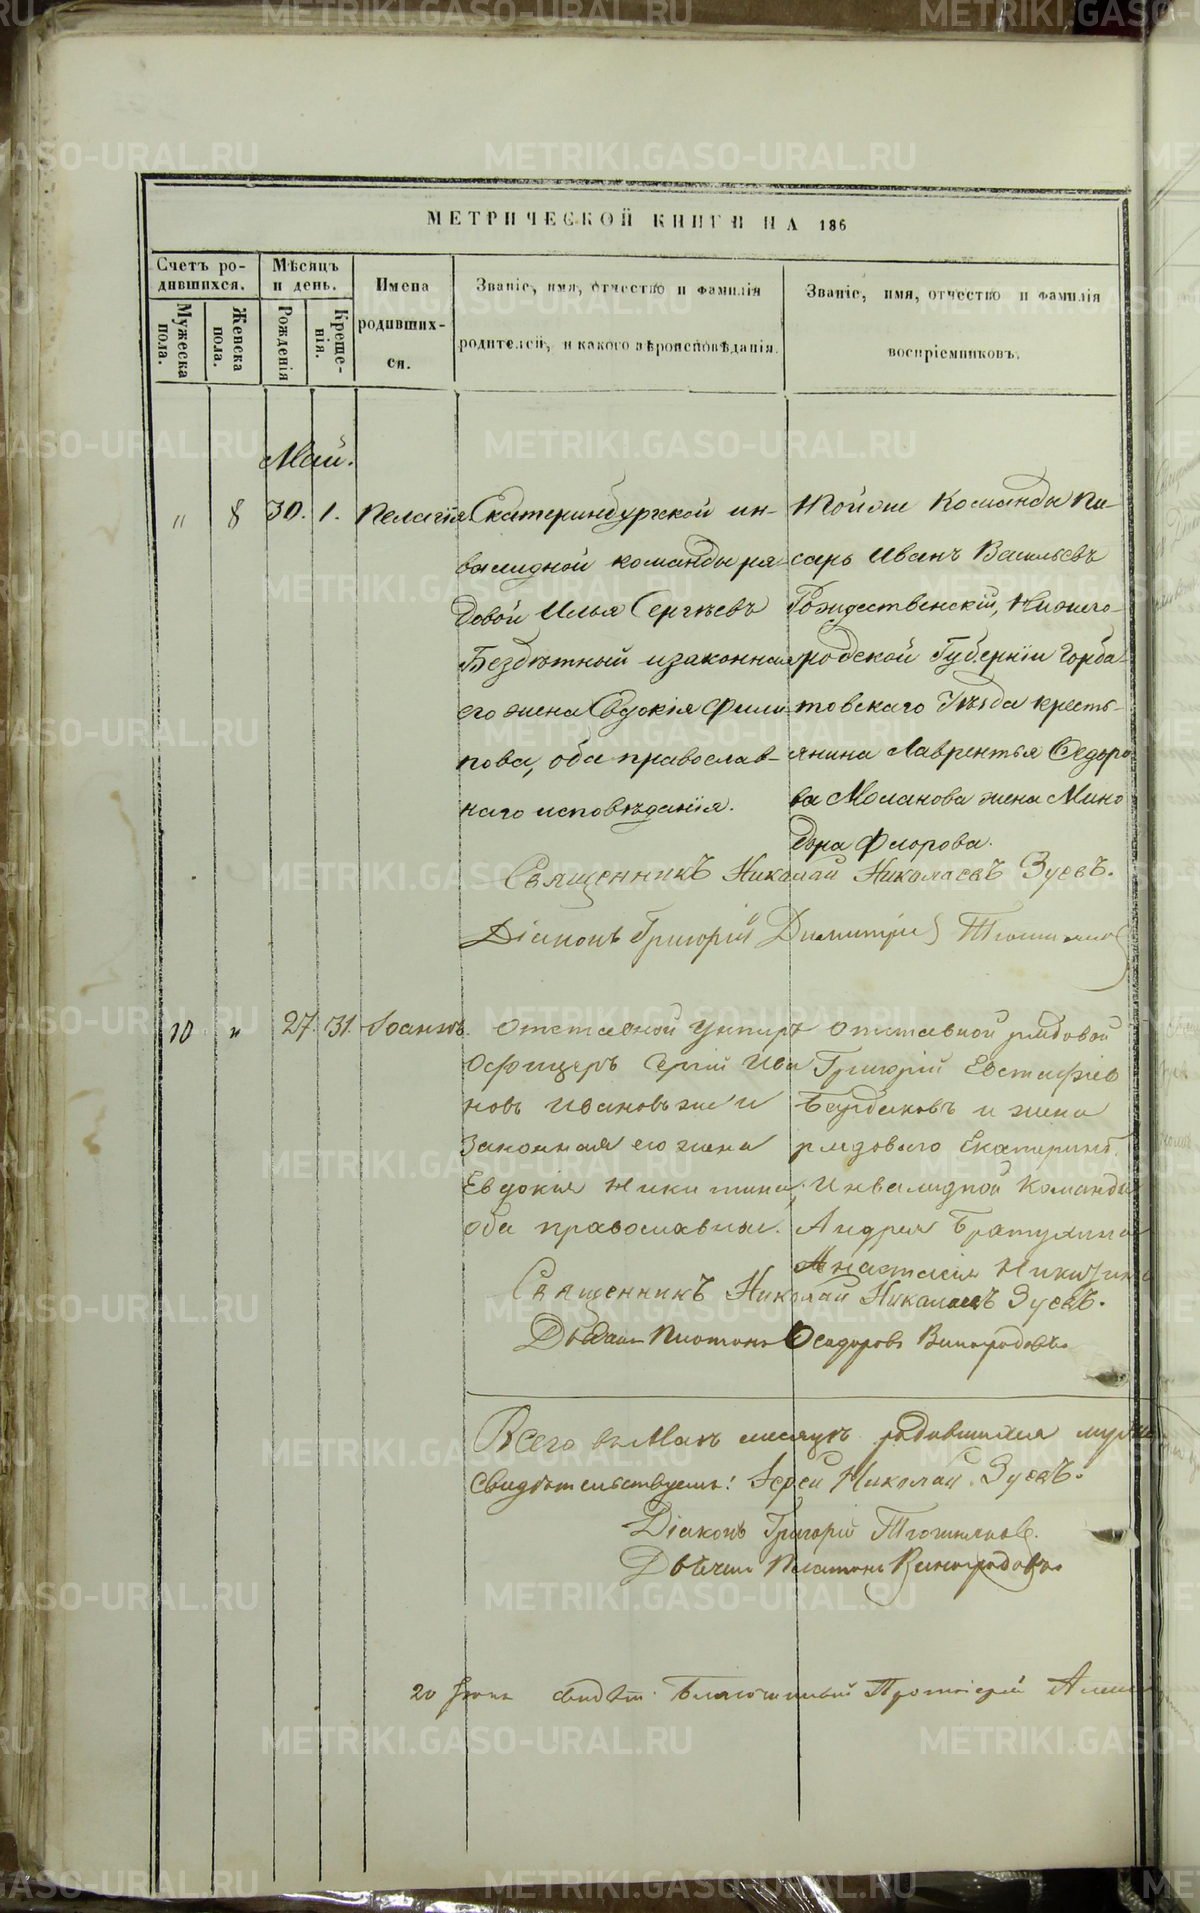 МЕТРИЧЕСКОЙ КНИГИ НА 186
Счетъ ро-
дившихся.
Мужеска
пола.
Женска
пола.
Мѣсяцъ
и день.
Рожденія
Креще-
нія.
Имена
родивших-
ся.
Званіе, имя, отчество и фамилія
родителей, и какого вѣроисповѣданія.
Званіе, имя, отчество и фамилія
воспріемниковъ.
Май.
" 8 30. 1. Пелагія
Екатеринбургской ин-
валидной команды ря-
довой Илья Сергѣевъ
Бездѣтный и законная
его жена Евдокія Филип-
пова, оба православ-
наго исповѣданія.
Тойже Команды Пи-
сарь Иванъ Васильевъ
Рождественскій, Нижего-
родской Губерніи Горба-
товскаго Уѣзда кресть-
янина Лаврентья Ѳедоро
ва Моланова жена Мино
дора Флорова.
Священникъ Николай Николаевъ Зуевъ.
Діаконъ Григорій Димитріевъ
10 " 27. 31. Іоаннъ
Отставной Унтеръ
Офицеръ Сергій Ива
новъ Ивановъ же и
Законная его жена
Евдокія Никитина,
оба православные.
Отставной рядовой
Григорій Евстафіев
и жена
рядоваго Екатеринб.
Инвалидной Команды
Андрея Братухина
Анастасія Никитина
Священникъ Николай Николаевъ Зуевъ.
Дьячекъ Платонъ Ѳедоровъ Виноградовъ.
Всего въ Маѣ месяцѣ родившихся
Свидѣтельствуемъ: Іерей Николай Зуевъ.
Діаконъ Григорій
Дьячекъ Платонъ Виноградовъ.
20 Іюня свидѣт. Благочинный Протоіерей
METRIKI.GASO-URAL.RU